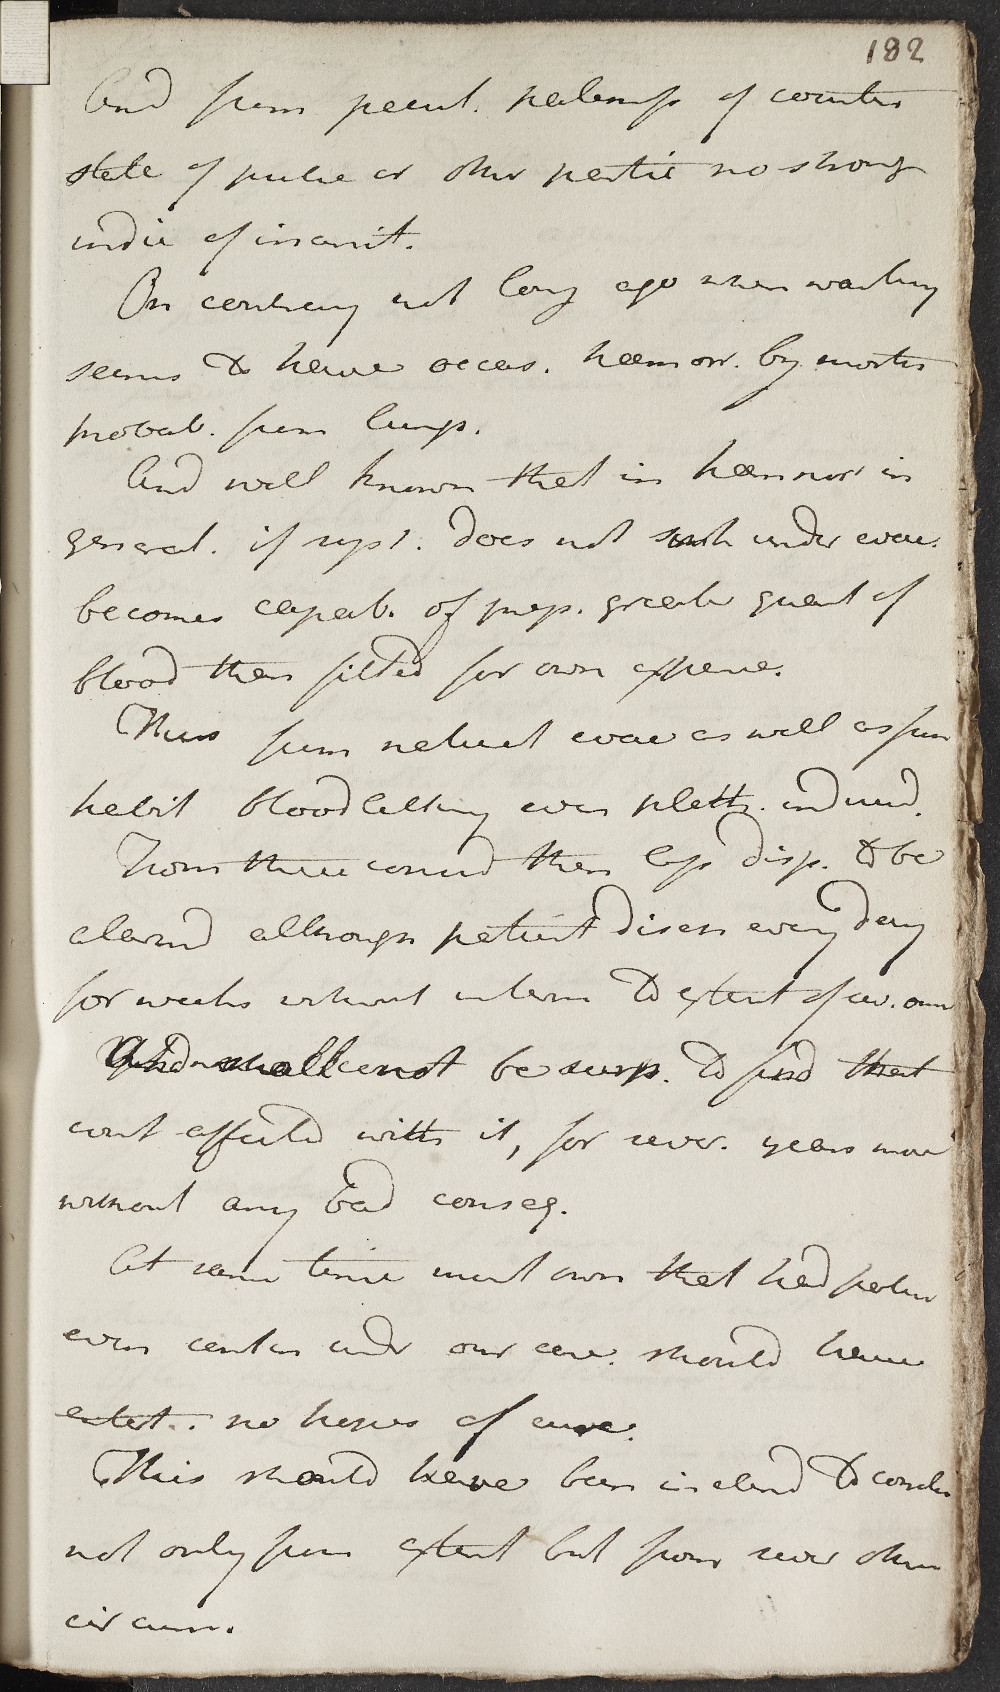 182
And from pecul. paleness of counten
state of pulse or other partic no strong
indic of inanit.
On contrary not long ago when washing
seems to have occas. haemorr. by mouth
probab. from lungs.
And well known that in haemorr in
general. if syst. does not sink under evac.
becomes capab. of prep. greater quant of
blood then fitted for own expence.
Thus from natural evac as well as from
habit bloodletting even pleth. induced.
From these considn then less disp. to be
alarmd although patient disch every day
for weeks without interm to extent of sev. ounc
And shall not be surp. to find that
cont affected with it, for sever. years more
without any bad conseq.
At same time must own that had patient
even contin under our care. should have
entert. no hopes of cure.
This should have been inclind to conclu
not only from extent but from sever other
circum.